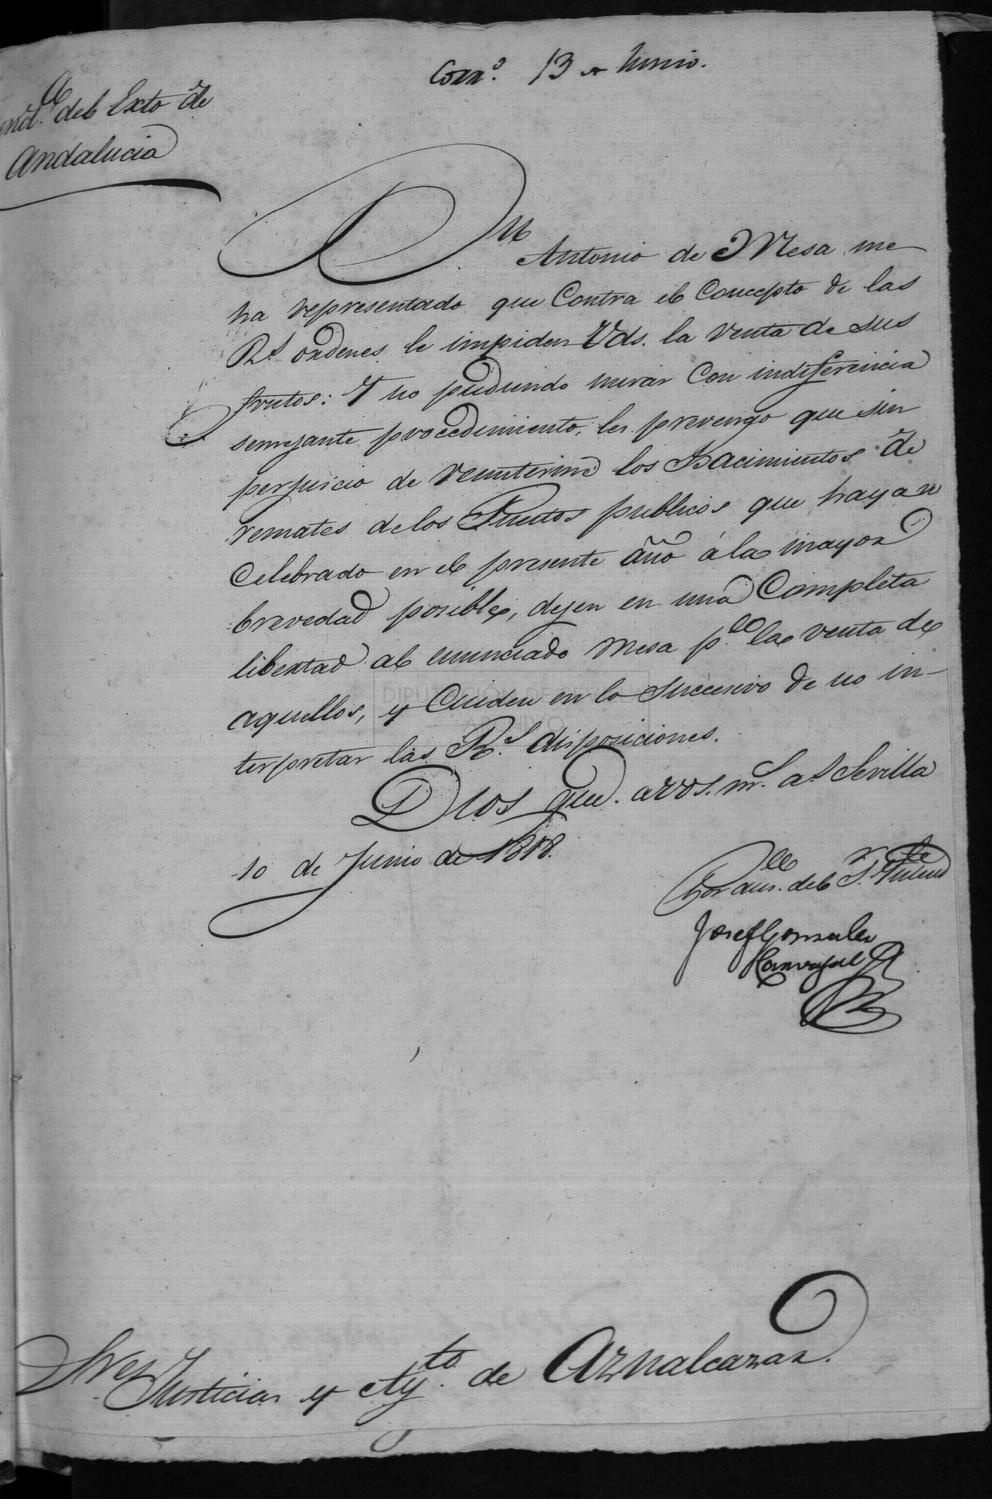 Corr.º 13 de Junio.
Ynd.ª del Exto de
Andalucia
Dn Antonio de Mesa me
ha representado que contra el concepto de las
Rs. ordenes le impiden Vds. la venta de sus
frutos: Y no pudiendo mirar con indiferencia
semejante procedimiento, les prevengo que sin
perjuicio de remitirme los Hacimientos de
remates de los Puestos publicos que hayan
celebrado en el presente año á la mayor
brevedad posible, dejen en una completa
libertad al enunciado Mesa p.a la venta de
aquellos, y cuiden en lo sucesivo de no in-
terpretar las Rs. disposiciones.
Dios gue. a vs. ms. as. Sevilla
10 de Junio de 1818.
Por aus. del Sr. Intend.te
Josef Gonzalez
Carvajal
Sres. Justicia y Ay.to de Aznalcazar.
DIPUTACION DE
ARCHIVO